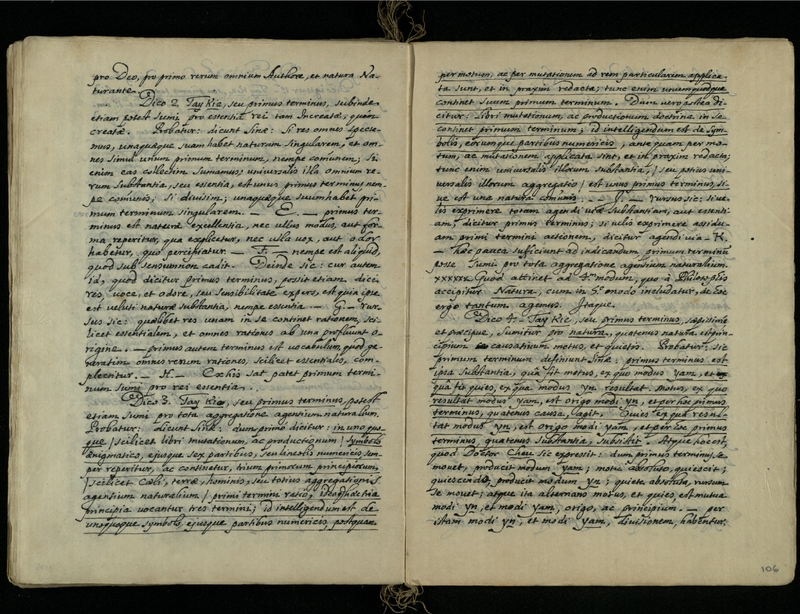 pro Deo, pro primo rerum omnium Authore, et natura Na-
turante.
Dico 2. Tay Kie, seu primus terminus, subinde
etiam potest sumi pro essentia rei tam Increatæ, quam
creatæ. Probatur: dicunt Sinæ: Si res omnes spectes-
mus, unaquæque suam habet naturam singularem, et om-
nes simul unum primum terminum, nempe comunem; Si
enim eas collectim sumamus universalis illa omnium re-
rum substantia, seu essentia, est unus primus terminus nem-
pe comunis, si divisim, unaquæque suum habet pri-
mum terminum singularem. — E. — primus ter-
minus est naturæ excellentia, nec ullus modus, aut for-
ma reperitur, qua explicetur, nec ulla vox, aut odor
habetur, quo percipiatur. — F. — nempe est aliquid,
quod sub sensum non cadit. Deinde sic: cur autem
id, quod dicitur primus terminus, possit etiam dici
res, voce, et odore, seu sensibilitate expers, est quia ipse
est veluti naturæ substantia, nempe essentia — G. — rur-
sus sic: quælibet res unam in se continet rationem, sci-
licet essentialem, et omnes rationes ab una profluunt o-
rigine. — primus autem terminus est vocabulum, quod ge-
neratim omnes rerum rationes, scilicet essentiales, com-
plectitur. — H. — Ex his sat patet primum termi-
num sumi pro rei essentia.
Dico 3. Tay Kie, seu primus terminus, potest
etiam sumi pro tota aggregatione agentium naturalium.
Probatur: dicunt Sinæ: dum primo dicitur: in uno quo-
que / scilicet libri mutationum, ac productionum / symbolo
enigmatico, ejusque sex partibus, seu lineolis numericis sem-
per reperitur, ac continetur, trium primorum principiorum,
/ scilicet Cæli, terræ, hominis, seu totius aggregationis
agentium naturalium / primi termini ratio, ideoque hæc tria
principia vocantur tres termini; id intelligendum est de
unoquoque symbolo, ejusque partibus numericis, postquam
per motum, ac per mutationem ad rem particularem applica-
ta sunt, et in praxim redacta; tunc enim unumquodque
continet suum primum terminum. Dum vero postea di-
citur: Libri mutationum, ac productionum doctrina in se
continet primum terminum; id intelligendum est de sym-
bolis, eorumque partibus numericis, ante quam per mo-
tum, ac mutationem applicata sint, et in praxim redacta;
tunc enim universalis illorum substantia, / seu potius uni-
versalis illorum aggregatio / est unus primus terminus, si-
ve est una natura comunis. — rursus sic: si ve-
lis exprimere totam agendi substantiam, aut essenti-
am, dicitur primus terminus; si velis exprimere assidu-
am primi termini actionem, dicitur agendi via — K.
— Hæc pauca sufficiunt ad indicandum primum terminum
posse sumi pro tota aggregatione agentium naturalium.
xxxxxx Quod attinet ad modum, quo à Philosophis
accipitur Natura, cum in modo includatur, de hoc
ergo tantum agemus. Itaque.
Dico 4. Tay Kie, seu primus terminus, sæpissime
et præcipue, sumitur pro natura, quatenus natura est prin-
cipium causativum motus, et quietis. Probatur: sic
primum terminum definiunt Sinæ: primus terminus est
ipsa substantia, qua fit motus, ex quo modus yam, et
qua fit quies, ex qua modus yn, resultat. Motus, ex quo
resultat modus yam, est origo modi yn, et per hoc primus
terminus, quatenus causa, / agit. Quies ex qua resul-
tat modus yn, est origo modi yam, et per hoc primus
terminus, quatenus substantia, subsistit. Atque hoc est,
quod Doctor Cheu sic expressit: dum primus terminus se
movet, producit modum yam; motu absoluto, quiescit;
quiescendo, producit modum yn; quiete absoluta, rursum
se movet; atque ita alternans motus, et quies, est mutua
modi yn, et modi yam, origo, ac principium. — per
istam modi yn, et modi yam, divisionem, habentur
106